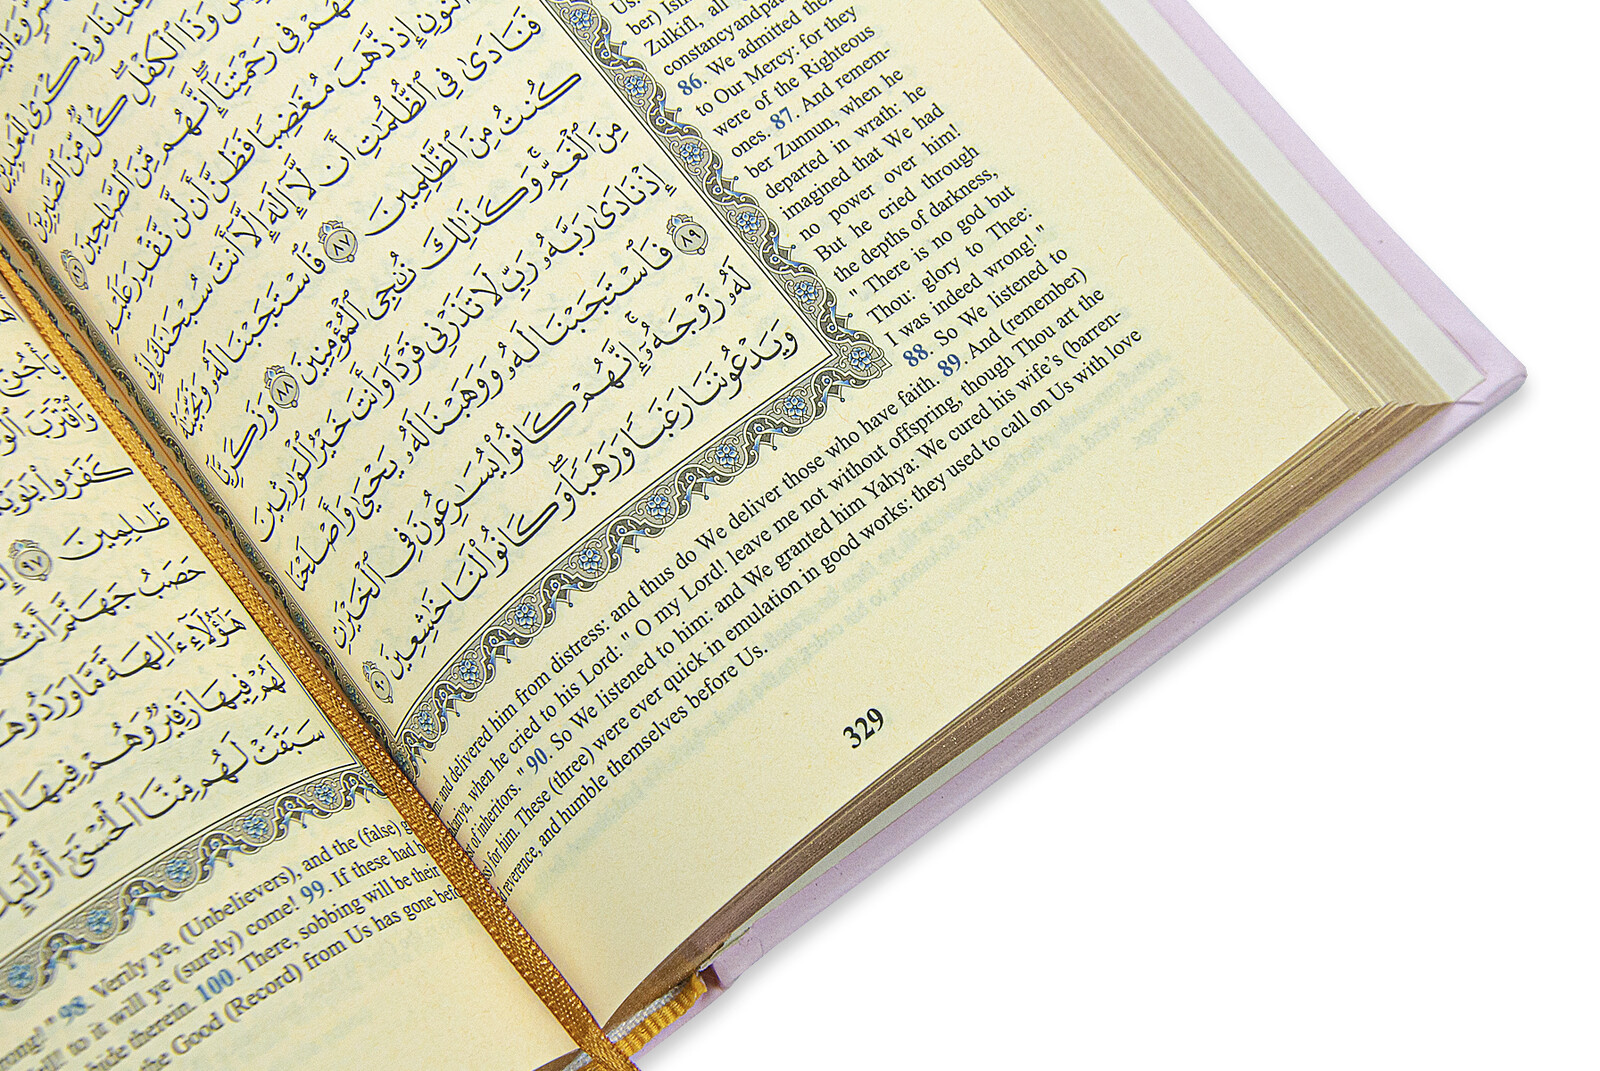 وَذَا ٱلْكِفْلِ كُلٌّ مِّنَ ٱلصَّٰبِرِينَ
إِنَّهُم مِّنَ ٱلصَّٰلِحِينَ ٨٦
إِذ ذَّهَبَ مُغَٰضِبًا فَظَنَّ أَن لَّن نَّقْدِرَ عَلَيْهِ
فَنَادَىٰ فِى ٱلظُّلُمَٰتِ أَن لَّآ إِلَٰهَ إِلَّآ أَنتَ سُبْحَٰنَكَ إِنِّى
كُنتُ مِنَ ٱلظَّٰلِمِينَ ٨٧ فَٱسْتَجَبْنَا لَهُۥ وَنَجَّيْنَٰهُ
مِنَ ٱلْغَمِّ وَكَذَٰلِكَ نُۨجِى ٱلْمُؤْمِنِينَ ٨٨ وَزَكَرِيَّآ
إِذْ نَادَىٰ رَبَّهُۥ رَبِّ لَا تَذَرْنِى فَرْدًا وَأَنتَ خَيْرُ ٱلْوَٰرِثِينَ
٨٩ فَٱسْتَجَبْنَا لَهُۥ وَوَهَبْنَا لَهُۥ يَحْيَىٰ وَأَصْلَحْنَا
لَهُۥ زَوْجَهُۥٓ إِنَّهُمْ كَانُوا۟ يُسَٰرِعُونَ فِى ٱلْخَيْرَٰتِ
وَيَدْعُونَنَا رَغَبًا وَرَهَبًا وَكَانُوا۟ لَنَا خَٰشِعِينَ ٩٠
Us.
ber)
Zulkifl, all
constancy and
86. We admitted
to Our Mercy: for they
were of the Righteous
ones. 87. And remem-
ber Zunnun, when he
departed in wrath: he
imagined that We had
no power over him!
But he cried through
the depths of darkness,
" There is no god but
Thou: glory to Thee:
I was indeed wrong! "
88. So We listened to
and delivered him from distress: and thus do We deliver those who have faith. 89. And (remember)
when he cried to his Lord: " O my Lord! leave me not without offspring, though Thou art the
of inheritors. " 90. So We listened to him: and We granted him Yahya: We cured his wife's (barren-
for him. These (three) were ever quick in emulation in good works: they used to call on Us with love
reverence, and humble themselves before Us.
329
وَٱقْتَرَبَ
كَفَرُوا۟
ظَٰلِمِينَ ٩٧
حَصَبُ جَهَنَّمَ أَنتُمْ
هَٰٓؤُلَآءِ ءَالِهَةً مَّا وَرَدُوهَا
لَهُمْ فِيهَا زَفِيرٌ وَهُمْ فِيهَا لَا
سَبَقَتْ لَهُم مِّنَّا ٱلْحُسْنَىٰٓ أُو۟لَٰٓئِكَ
" 98. Verily ye, (Unbelievers), and the (false)
to it will ye (surely) come! 99. If these had
therein. 100. There, sobbing will be their
the Good (Record) from Us has gone